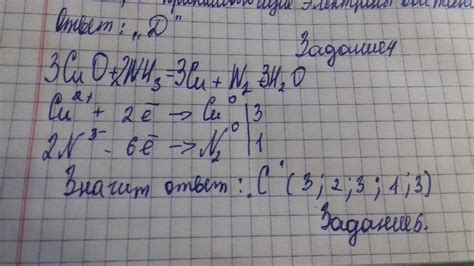 электроны
Ответ: „D"
Задание4
3CuO+2NH₃=3Cu+N₂+3H₂O
Cu²⁺ + 2ē → Cu⁰ | 3
2N³⁻ - 6ē → N₂⁰ | 1
Значит ответ: „C" (3; 2; 3; 1; 3)
Задание5.